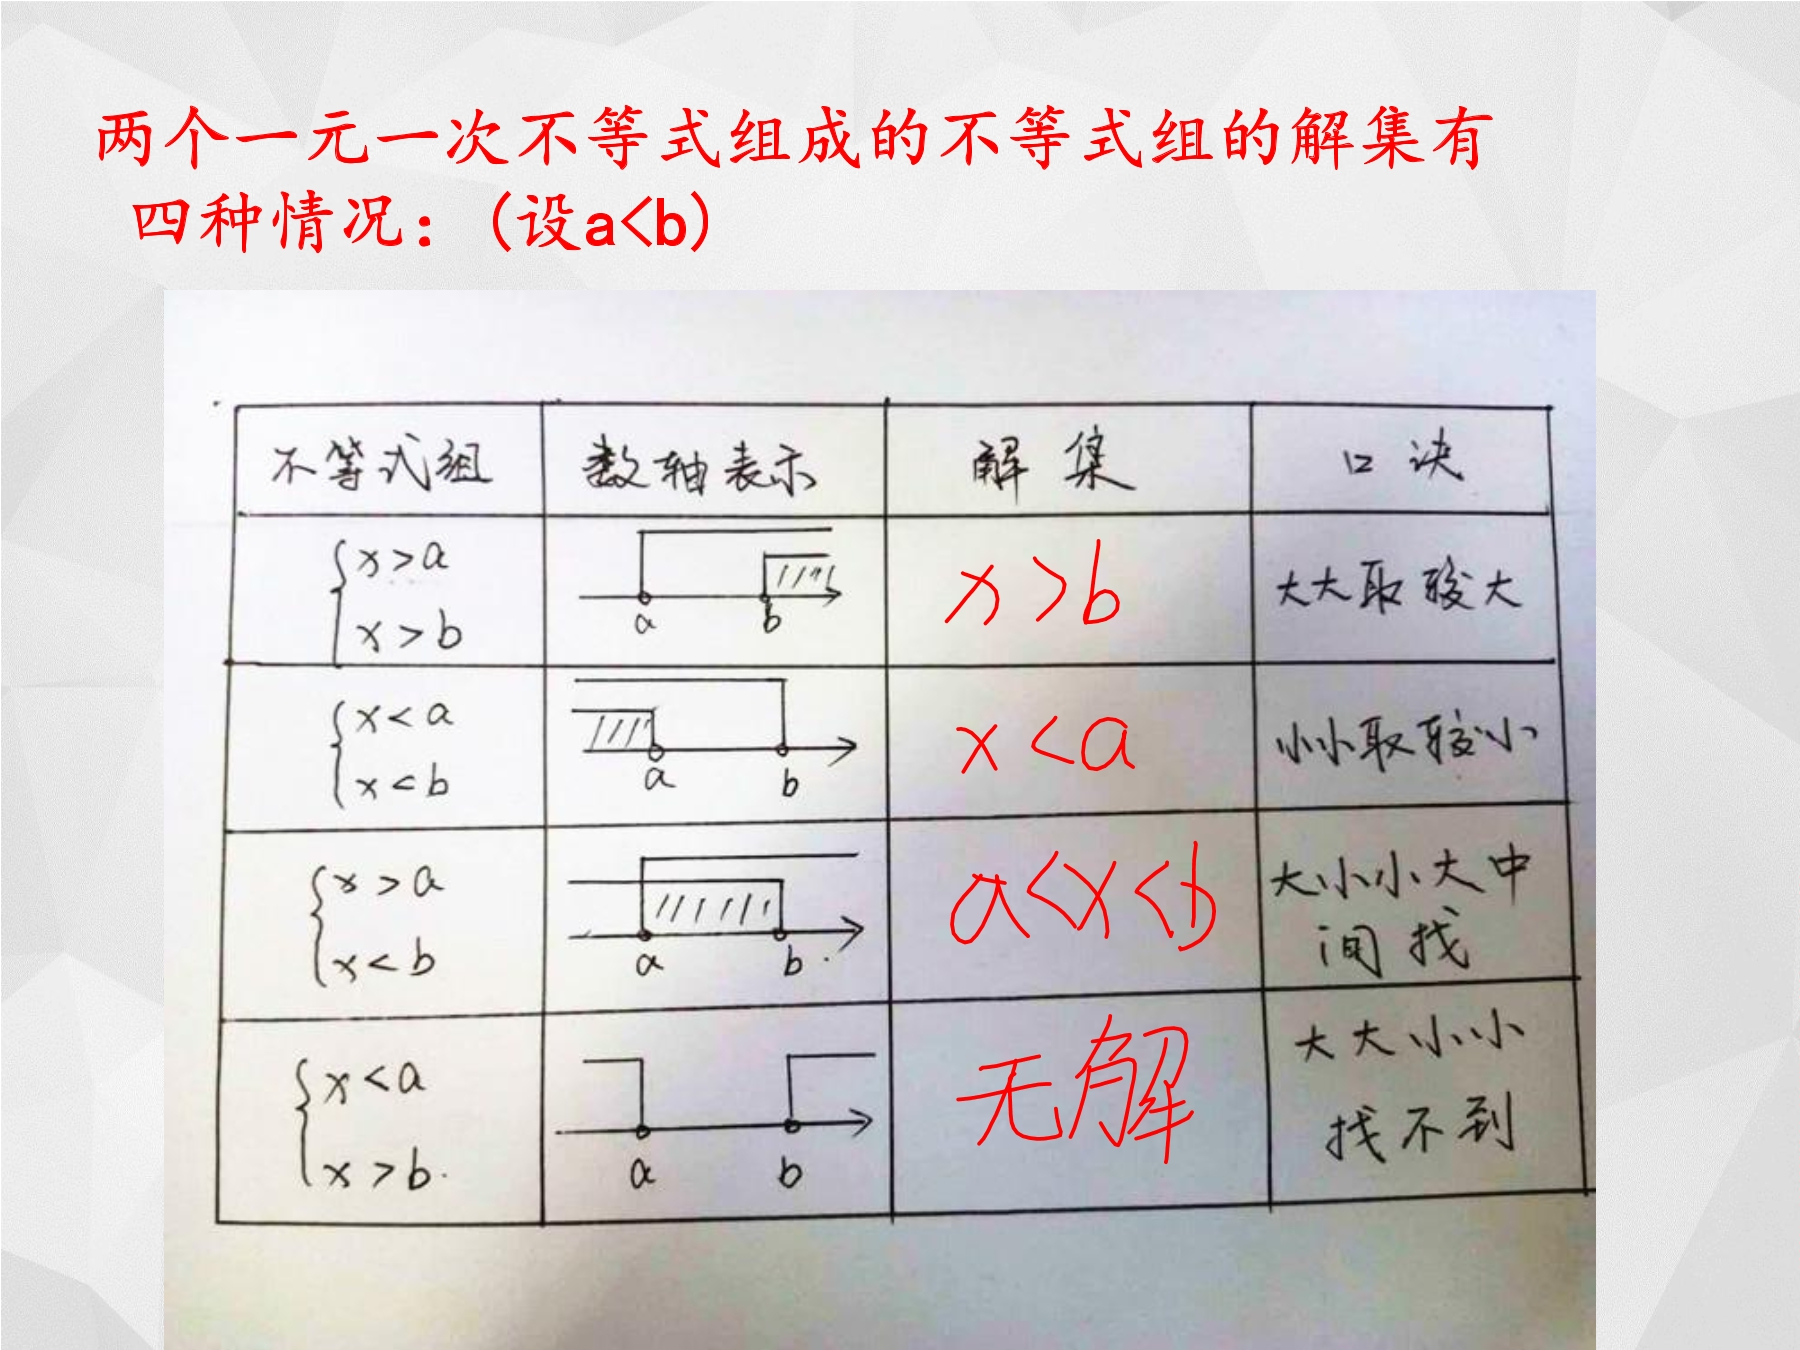 两个一元一次不等式组成的不等式组的解集有
四种情况：(设a<b)
不等式组 数轴表示 解集 口诀
x>a
x>b
a b
x>b
大大取较大
x<a
x<b
a b
x<a
小小取较小
x>a
x<b
a b
a<x<b
大小小大中
间找
x<a
x>b
a b
无解
大大小小
找不到